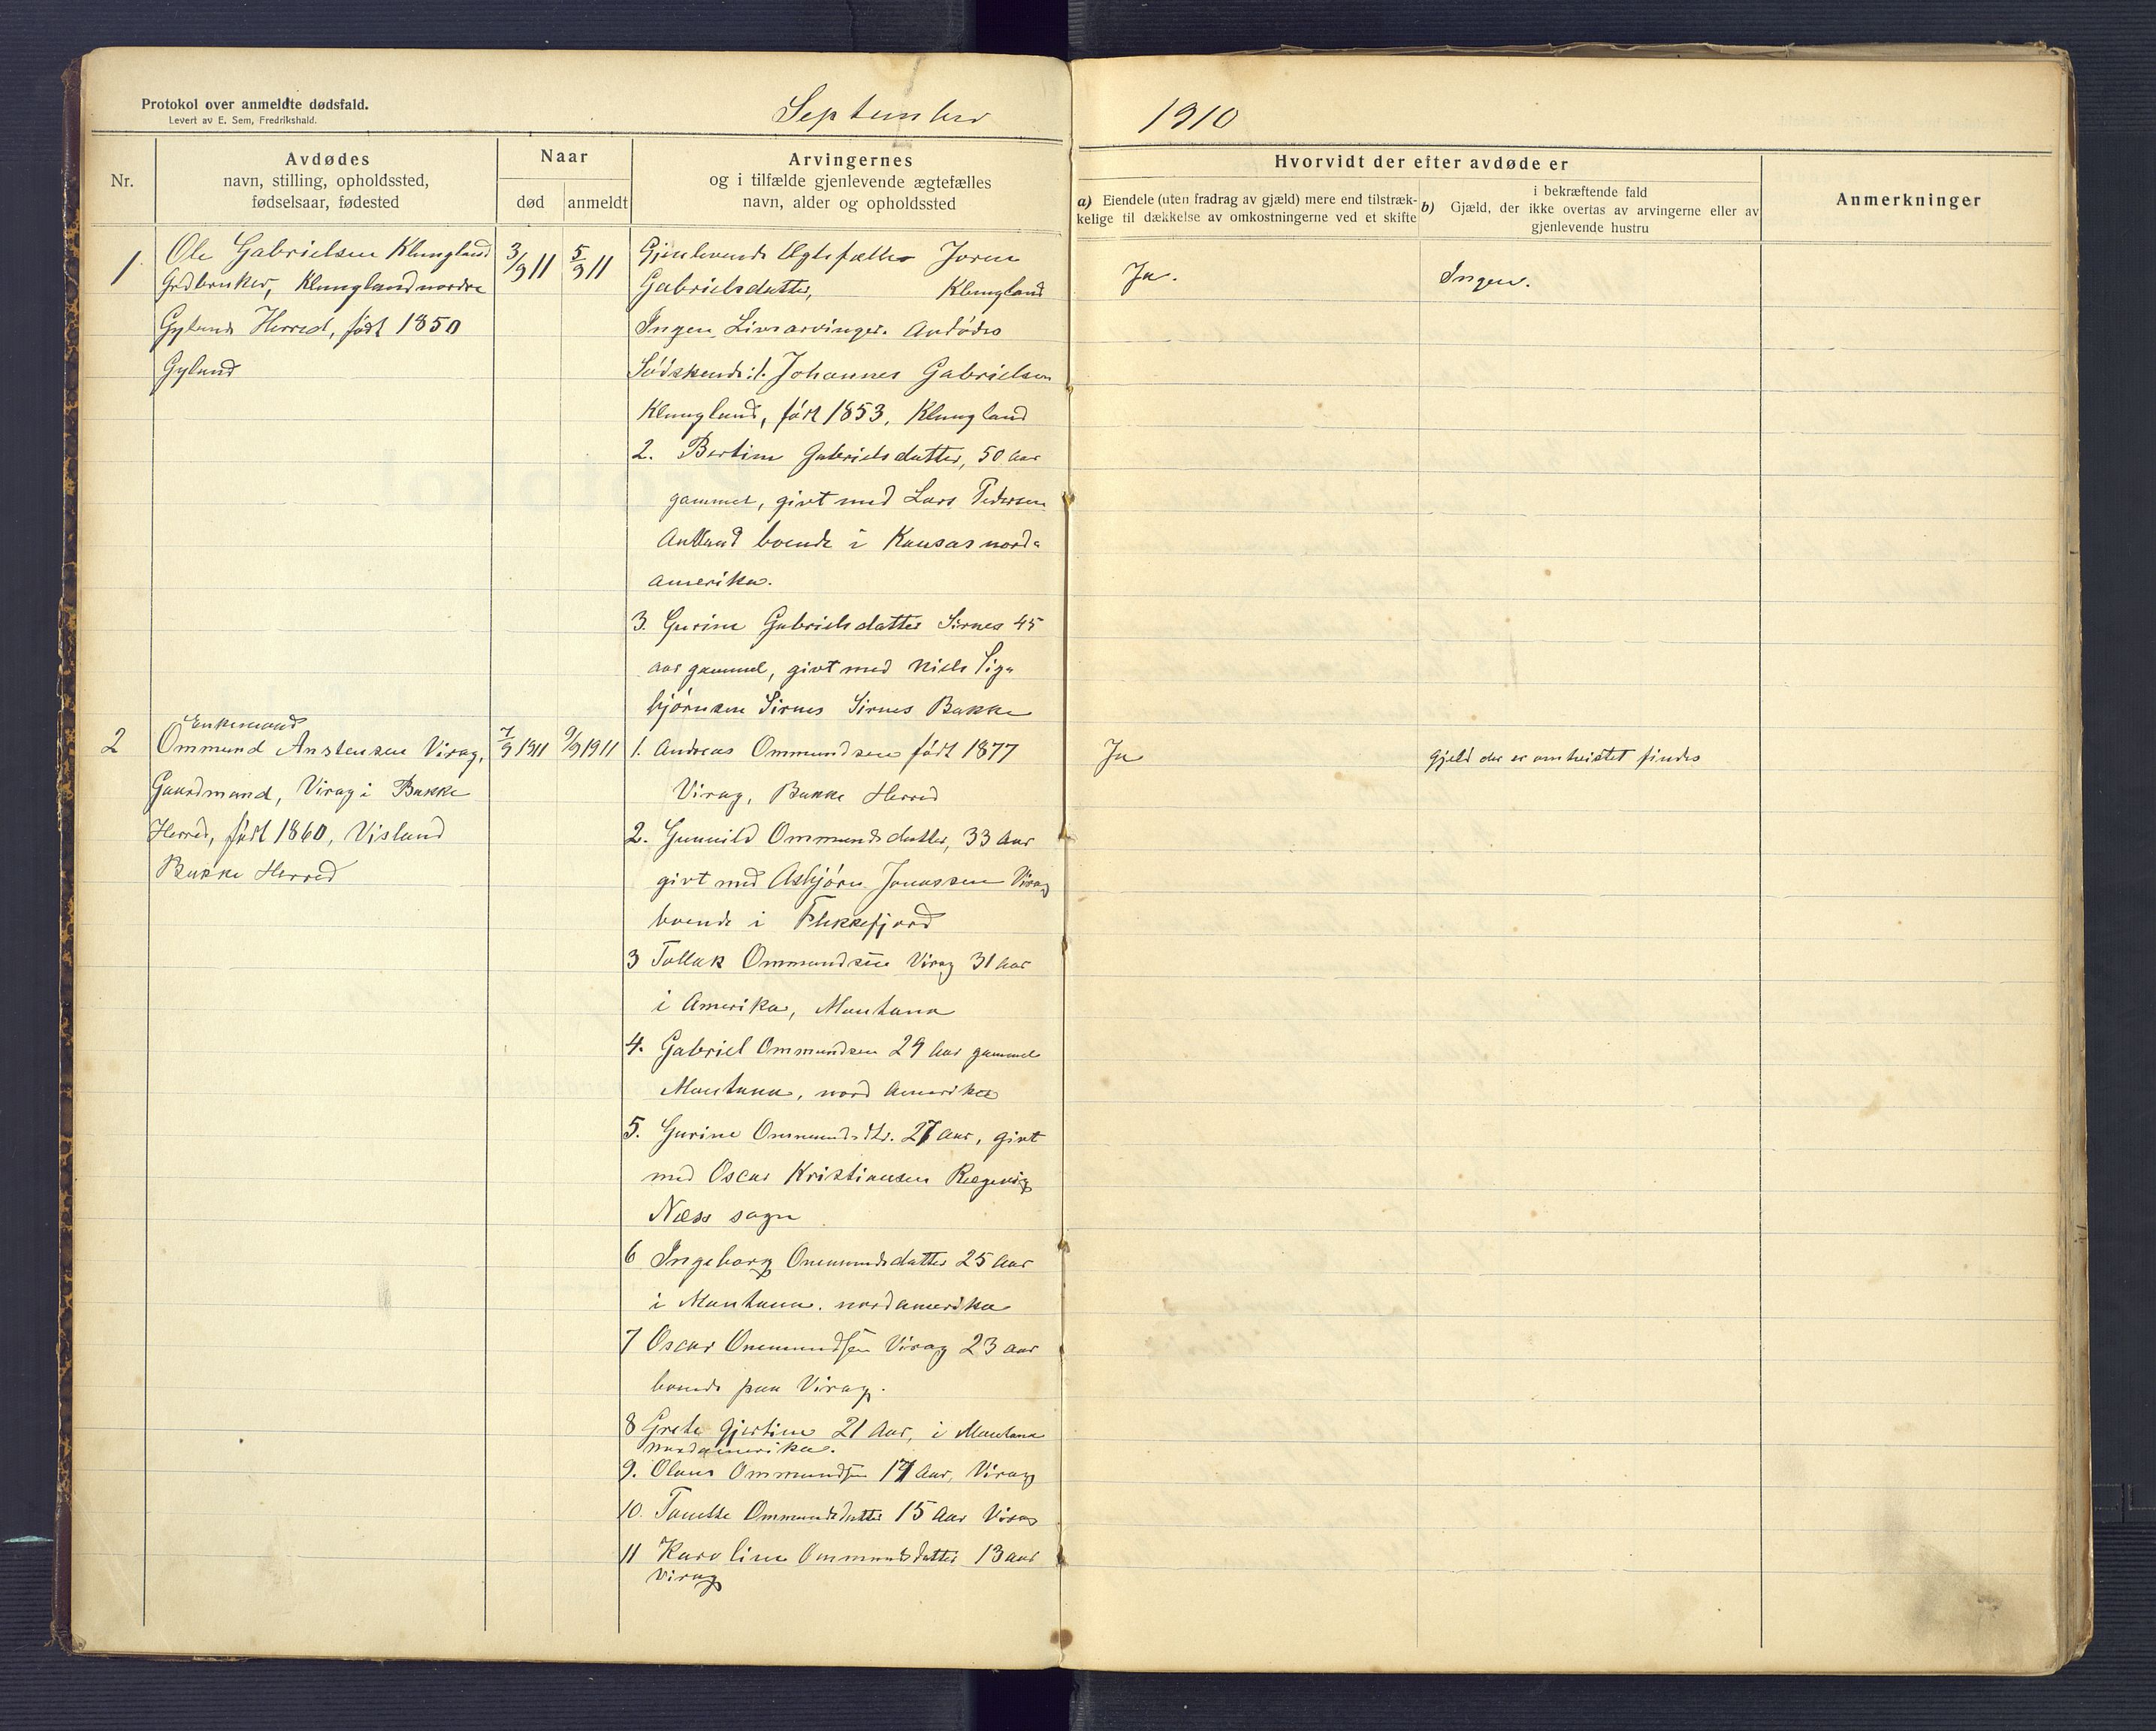 Protokol over anmeldte dødsfald.
Levert av E. Sem, Fredrikshald.
September 1910
Nr.
Avdødes
navn, stilling, opholdssted,
fødselsaar, fødested
Naar
død
anmeldt
Arvingernes
og i tilfælde gjenlevende ægtefælles
navn, alder og opholdssted
Hvorvidt der efter avdøde er
a) Eiendele (uten fradrag av gjæld) mere end tilstræk-
kelige til dækkelse av omkostningerne ved et skifte
i bekræftende fald
b) Gjæld, der ikke overtas av arvingerne eller av
gjenlevende hustru
Anmerkninger
1
Ole Gabrielsen Klungland
Grdbruker, Klungland nordre
Gylands Herred, født 1850
Gyland
3/9 11
5/9 11
Gjenlevende Ægtefælle Joren
Gabrielsdatter, Klungland
Ingen Livsarvinger. Avdødes
Sødskende: 1. Johannes Gabrielsen
Klungland, født 1853, Klungland
2. Bertine Gabrielsdatter, 50 aar
gammel, givt med Lars Pedersen
boende i Kansas nord-
amerika.
3. Gurine Gabrielsdatter Sirnes 45
aar gammel, givt med Niels Sig-
bjørnsen Sirnes Sirnes Bakke
Ja.
Ingen.
2
Enkemand
Ommund Anstensen Virag,
Gaardmand, Virag i Bakke
Herred, født 1860, Visland
Bakke Herred
7/9 1911
9/9 1911
1. Andreas Ommundsen født 1877
Virag, Bakke Herred
2. Gunnild Ommundsdatter, 33 aar
givt med Asbjørn Jonassen Virag
boende i Flekkefjord
3 Tollak Ommundsen Virag 31 aar
i Amerika, Montana
4. Gabriel Ommundsen 29 aar gammel
Montana, nord Amerika
5. Gurine Ommundsdtr. 27 aar, givt
med Oscar Kristiansen
Næss sogn
6 Ingeborg Ommundsdatter 25 aar
i Montana. nordamerika
7 Oscar Ommundsen Virag 23 aar
boende paa Virag.
8 Grete Gjertine 21 aar, i Montana
nordamerika.
9. Olaus Ommundsen 17 aar, Virag
10. Tonette Ommundsdatter 15 aar Virag
11 Karoline Ommundsdatter 13 aar
Virag
Ja
Gjeld der er omtvistet findes